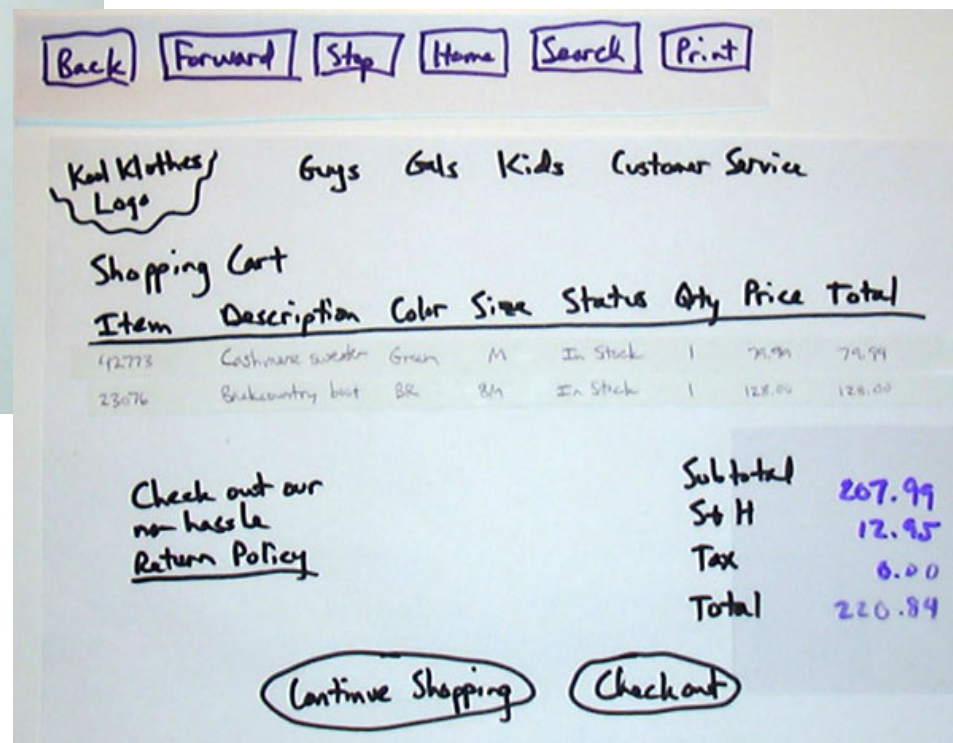 Back Forward Stop Home Search Print
Kool Klothes Logo Guys Gals Kids Customer Service
Shopping Cart
Item Description Color Size Status Qty Price Total
42773 Cashmere sweater Green M In Stock 1 79.99 79.99
23076 Backcountry boot BR 8M In Stock 1 128.00 128.00
Check out our
no hassle
Return Policy
Subtotal 207.99
S+H 12.95
Tax 0.00
Total 220.84
Continue Shopping Checkout